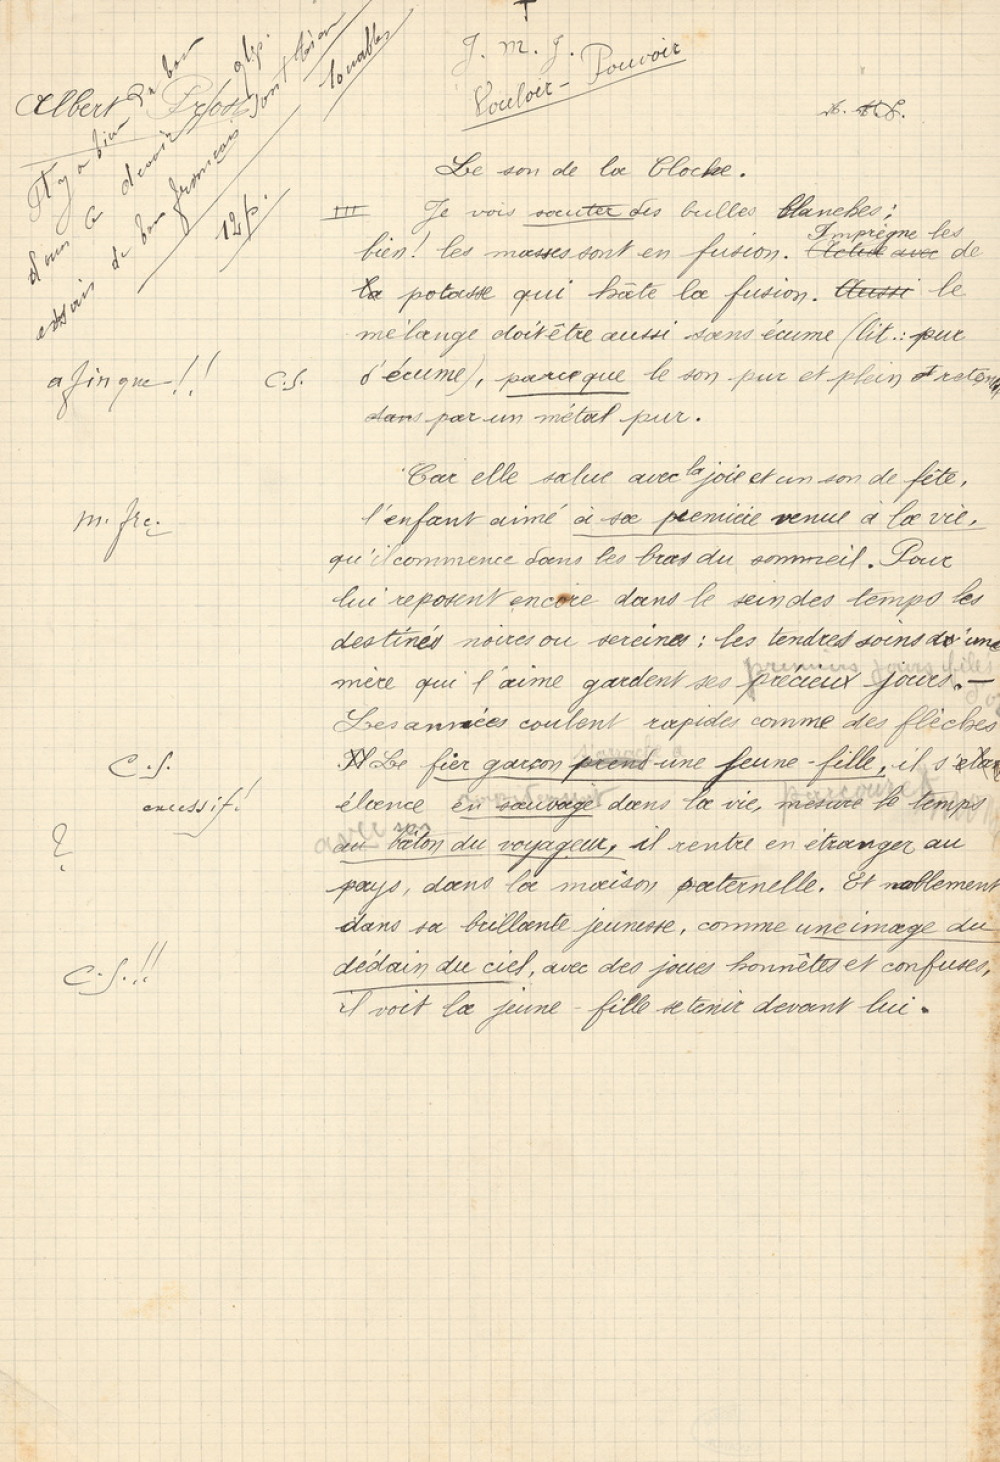 J. M. J.
Vouloir - Pouvoir
Albert
Il y a bien du bon
dans ce devoir
essais de bon français
sont bien
louables
12 p.
Le son de la Cloche.
III Je vois sauter des bulles blanches;
Imprègne les
bien! les masses sont en fusion. avec de
la potasse qui hâte la fusion. Aussi le
mélange doit être aussi sans écume (lit.: pur
afin que !! C.S. d'écume), parce que le son pur et plein
dans par un métal pur.
Car elle salue avec la joie et un son de fête,
m. frç. l'enfant aimé à sa première venue à la vie,
qu'il commence dans les bras du sommeil. Pour
lui reposent encore dans le sein des temps les
destinés noires ou sereines: les tendres soins d'une
premiers jours filés
mère qui l'aime gardent ses précieux jours. —
Les années coulent rapides comme des flèches
C.S. Le fier garçon prend une jeune-fille, il s'
excessif! élance en sauvage dans la vie, mesure le temps
parcourt
? avec son
au bâton du voyageur, il rentre en étranger au
pays, dans la maison paternelle. Et noblement
dans sa brillante jeunesse, comme une image du
C.S.!! dédain du ciel, avec des joues honnêtes et confuses,
il voit la jeune-fille se tenir devant lui.